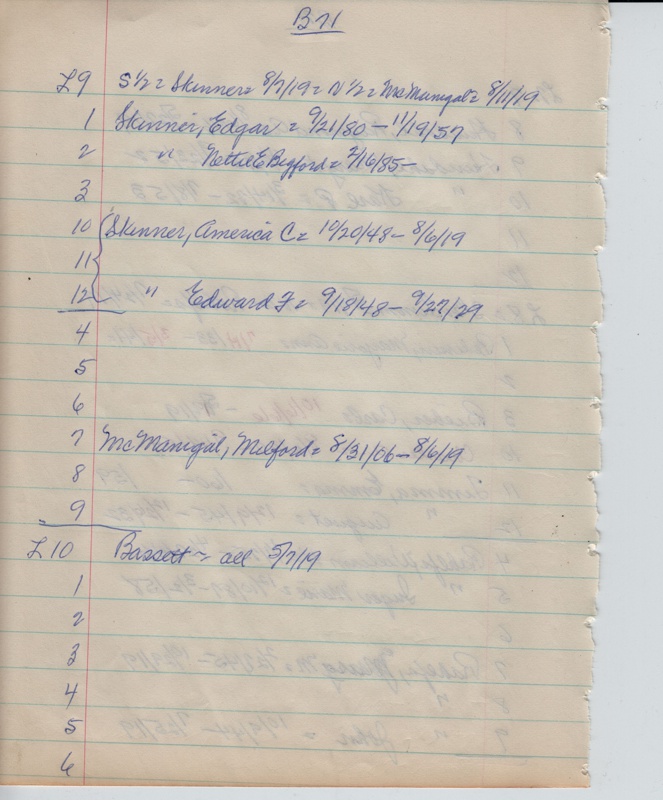 B 71
L9 S 1/2 = Skinner = 8/7/19 = N 1/2 = McManigal = 8/11/19
1 Skinner, Edgar = 9/21/80 - 11/19/57
2 " Nettie E Bigford = 2/16/85 -
3
10 Skinner, America C = 10/20/48 - 8/6/19
11
12 " Edward F = 9/18/48 - 9/27/29
4
5
6
7 McManigal, Milford = 8/31/06 - 8/6/19
8
9
L10 Bassett ~ all 5/7/19
1
2
3
4
5
6